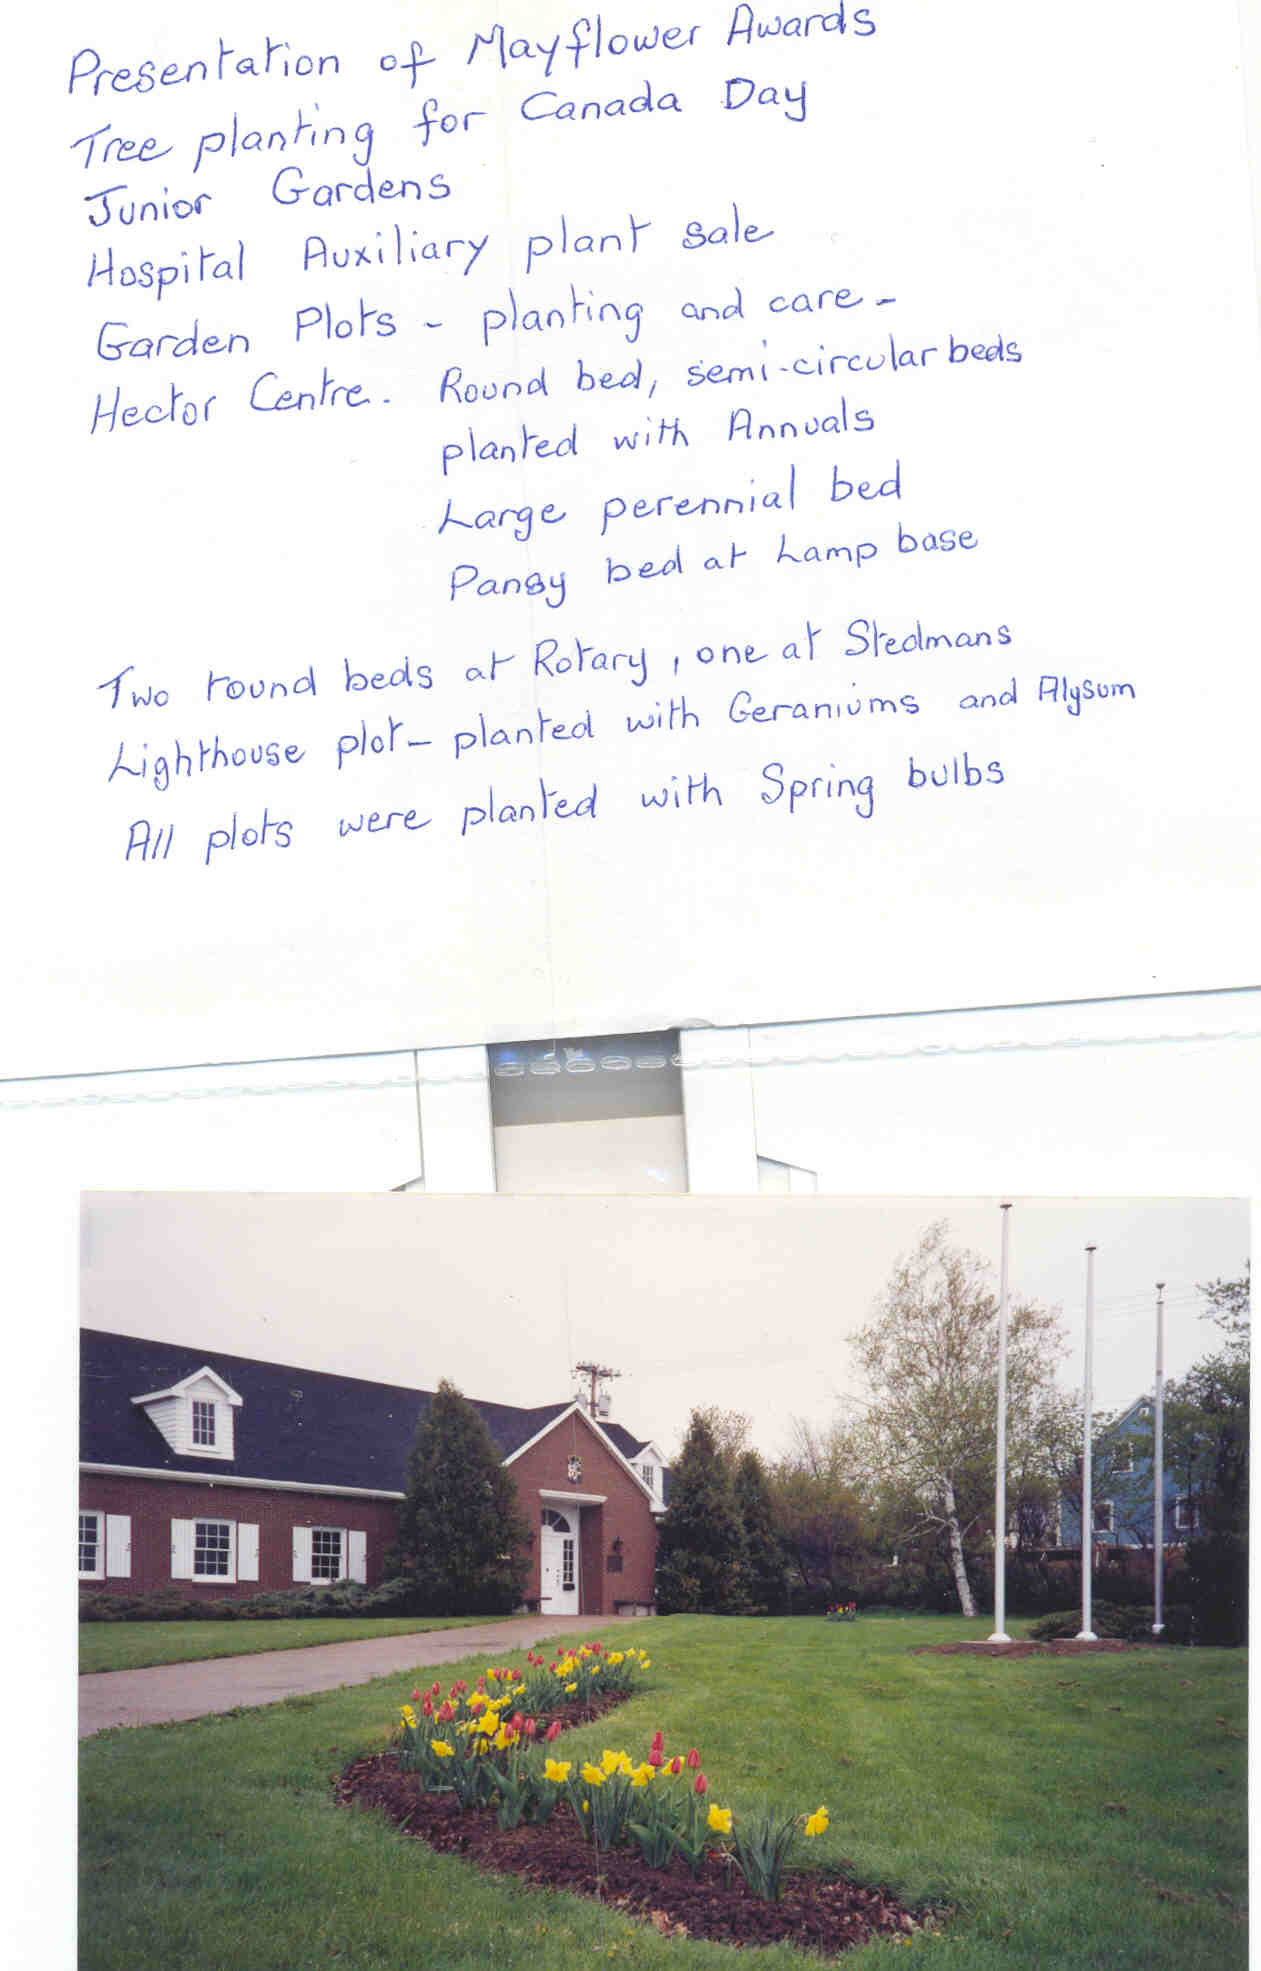 Presentation of Mayflower Awards
Tree planting for Canada Day
Junior Gardens
Hospital Auxiliary plant sale
Garden Plots - planting and care -
Hector Centre. Round bed, semi-circular beds
planted with Annuals
Large perennial bed
Pansy bed at Lamp base
Two round beds at Rotary, one at Stedmans
Lighthouse plot - planted with Geraniums and Alysum
All plots were planted with Spring bulbs